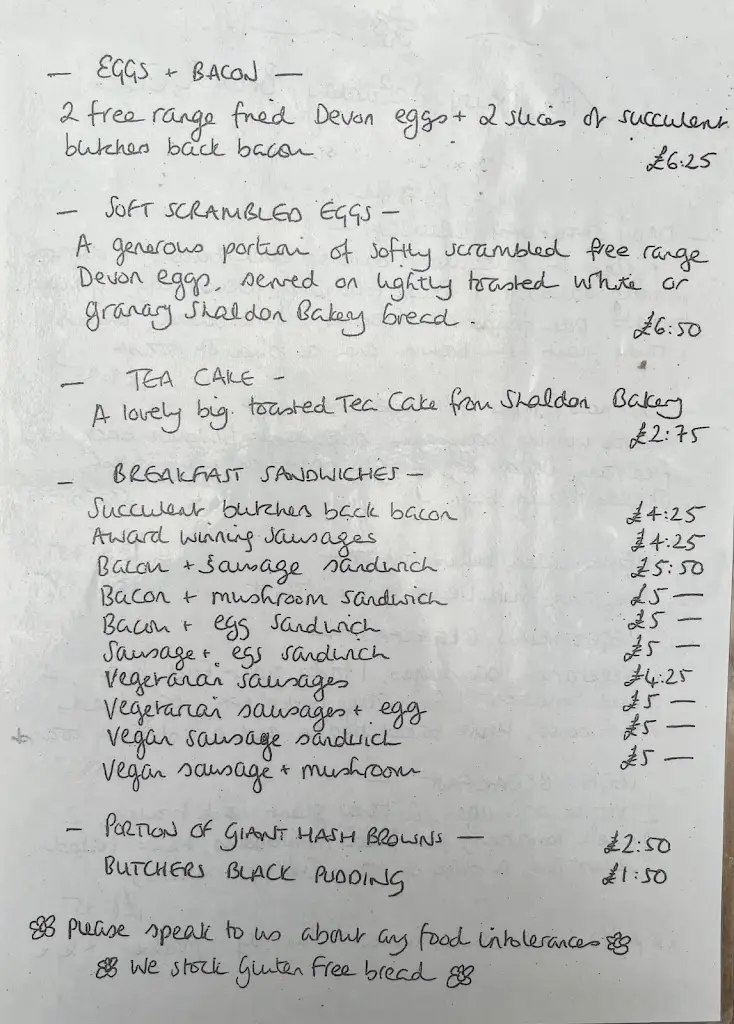 — EGGS + BACON —
2 free range fried Devon eggs + 2 slices of succulent
butchers back bacon
£6.25
— SOFT SCRAMBLED EGGS —
A generous portion of softly scrambled free range
Devon eggs, served on lightly toasted white or
granary Shaldon Bakery bread.
£6:50
— TEA CAKE -
A lovely big toasted Tea Cake from Shaldon Bakery
£2:75
- BREAKFAST SANDWICHES —
Succulent butchers back bacon £4:25
Award winning sausages £4:25
Bacon + Sausage sandwich £5:50
Bacon + mushroom sandwich £5 —
Bacon + egg sandwich £5 —
Sausage + egg sandwich £5 —
Vegetarian sausages £4:25
Vegetarian sausages + egg £5 —
Vegan sausage sandwich £5 —
Vegan sausage + mushroom £5 —
- PORTION OF GIANT HASH BROWNS — £2:50
BUTCHERS BLACK PUDDING £1:50
Please speak to us about any food intolerances
We stock Gluten Free bread